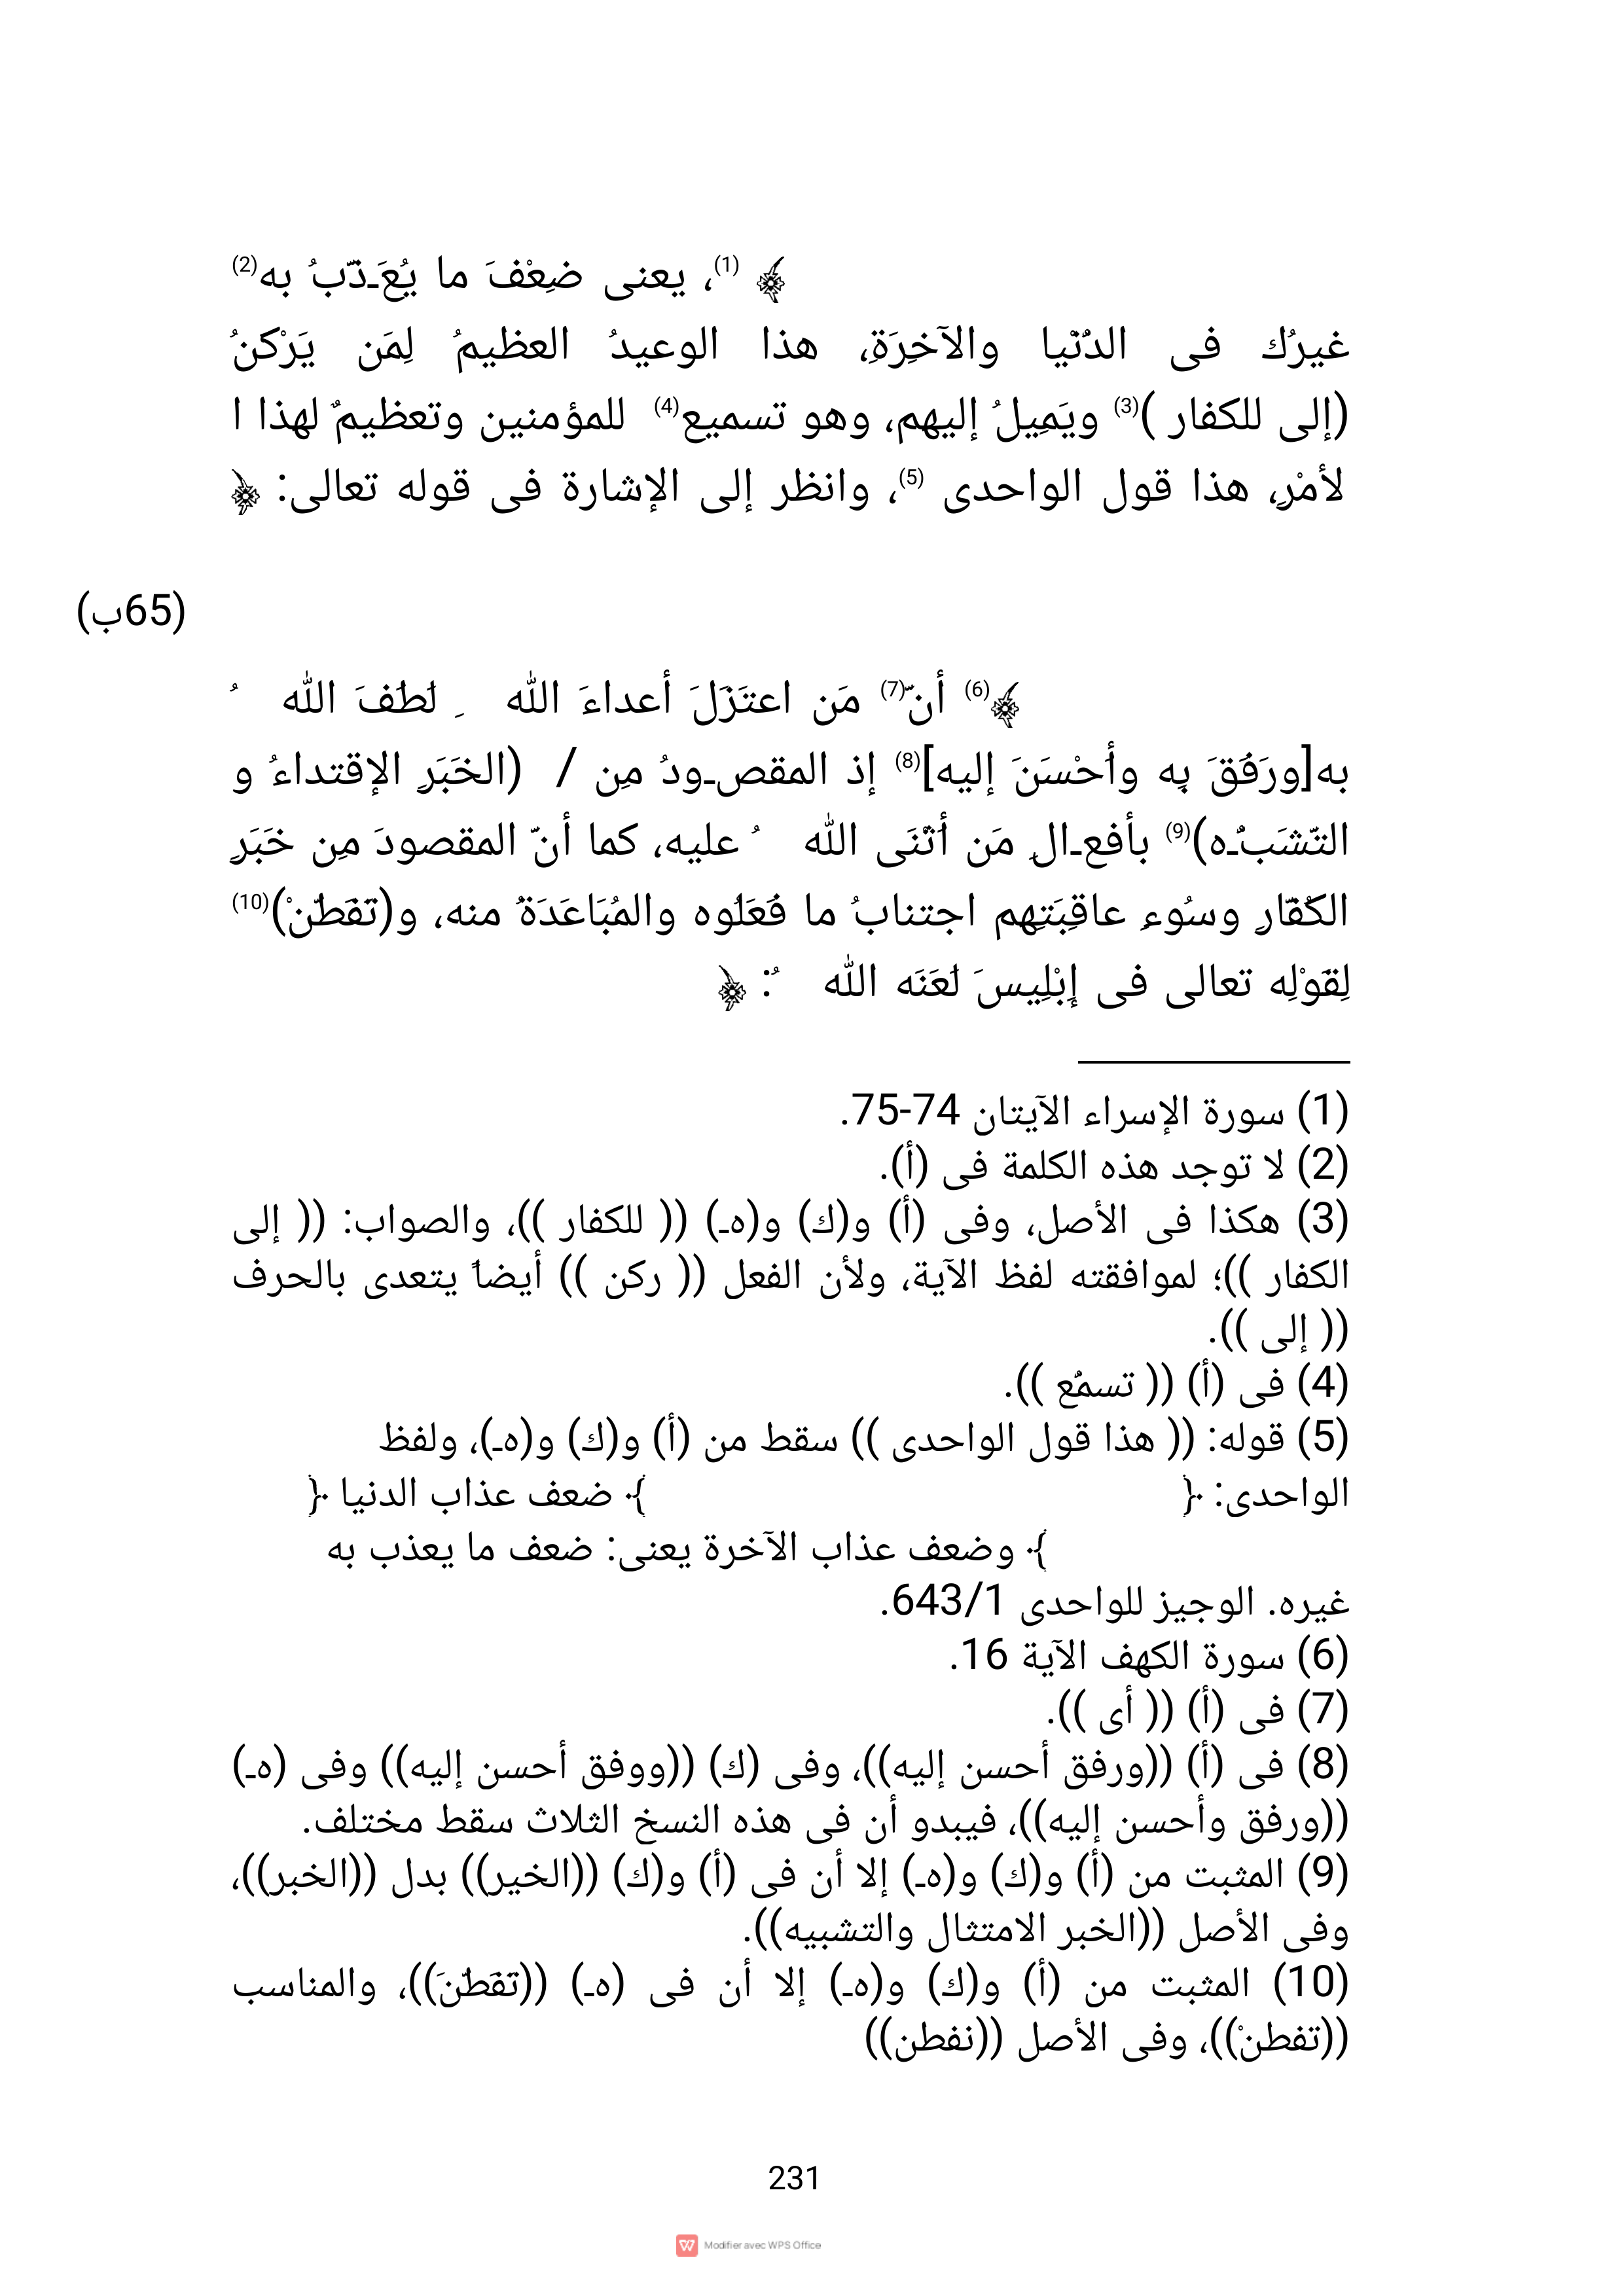 ﴾ (1)، يعنى ضِعْفَ ما يُعَـذّبُ به(2)
غيرُك فى الدُنْيا والآخِرَةِ، هذا الوعيدُ العظيمُ لِمَن يَرْكَنُ
(إلى للكفار )(3) ويَمِيلُ إليهم، وهو تسميع(4) للمؤمنين وتعظيمٌ لهذا ا
لأمْرِ، هذا قول الواحدى (5)، وانظر إلى الإشارة فى قوله تعالى: ﴿
(65ب)
﴾(6) أنّ(7) مَن اعتَزَلَ أعداءَ الله ِ لَطَفَ الله ُ
به[ورَفَقَ بِه وأحْسَنَ إليه](8) إذ المقصـودُ مِن / (الخَبَرِ الإقتداءُ و
التّشَبُـه)(9) بأفعـالِ مَن أثْنَى الله ُ عليه، كما أنّ المقصودَ مِن خَبَرِ
الكُفّارِ وسُوءِ عاقِبَتِهِم اجتنابُ ما فَعَلُوه والمُبَاعَدَةُ منه، و(تَفَطّنْ)(10)
لِقَوْلِه تعالى فى إِبْلِيسَ لَعَنَه الله ُ: ﴿
(1) سورة الإسراء الآيتان 74-75.
(2) لا توجد هذه الكلمة فى (أ).
(3) هكذا فى الأصل، وفى (أ) و(ك) و(هـ) (( للكفار ))، والصواب: (( إلى
الكفار ))؛ لموافقته لفظ الآية، ولأن الفعل (( ركن )) أيضاً يتعدى بالحرف
(( إلى )).
(4) فى (أ) (( تسمُع )).
(5) قوله: (( هذا قول الواحدى )) سقط من (أ) و(ك) و(هـ)، ولفظ
الواحدى: ﴿ ﴾ ضعف عذاب الدنيا ﴿
﴾ وضعف عذاب الآخرة يعنى: ضعف ما يعذب به
غيره. الوجيز للواحدى 643/1.
(6) سورة الكهف الآية 16.
(7) فى (أ) (( أى )).
(8) فى (أ) ((ورفق أحسن إليه))، وفى (ك) ((ووفق أحسن إليه)) وفى (هـ)
((ورفق وأحسن إليه))، فيبدو أن فى هذه النسخ الثلاث سقط مختلف.
(9) المثبت من (أ) و(ك) و(هـ) إلا أن فى (أ) و(ك) ((الخير)) بدل ((الخبر))،
وفى الأصل ((الخبر الامتثال والتشبيه)).
(10) المثبت من (أ) و(ك) و(هـ) إلا أن فى (هـ) ((تَفَطّنَ))، والمناسب
((تفطنْ))، وفى الأصل ((نفطن))
231
Modifier avec WPS Office